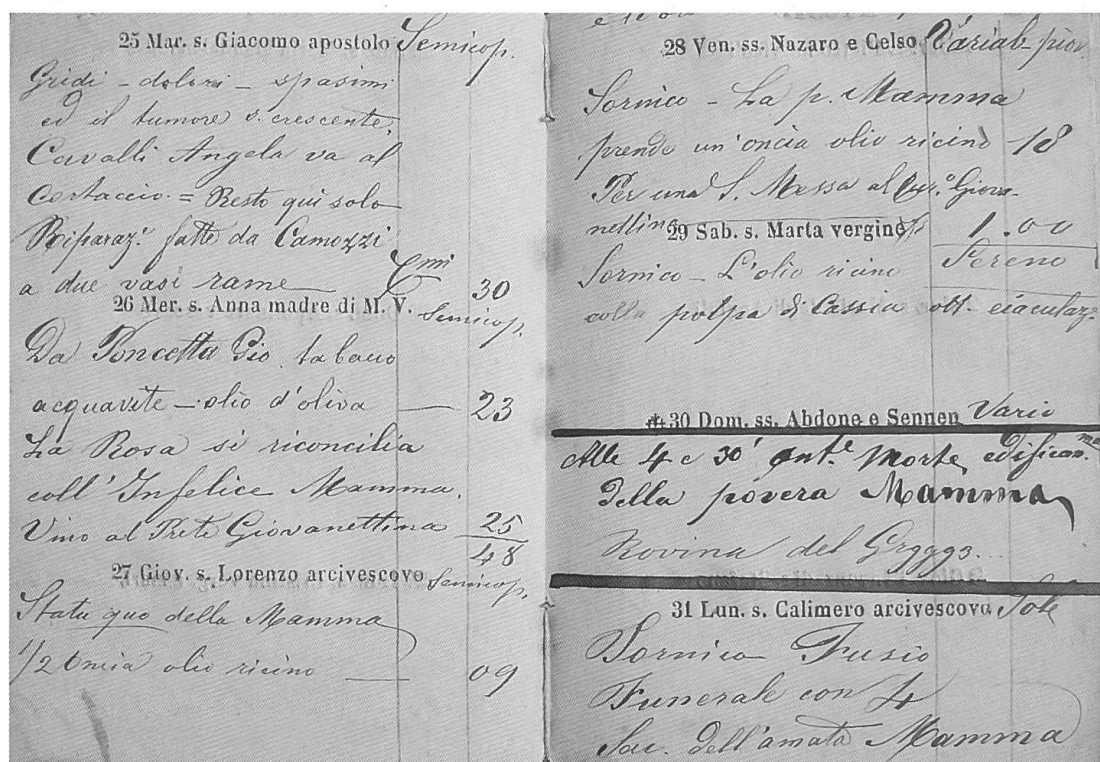 25 Mar. s. Giacomo apostolo Semicop.
Gridi - dolori - spasimi
ed il tumore s. crescente.
Cavalli Angela va al
= Resto qui solo
Riparaz.i fatte da Camozzi
a due vasi rame 30
26 Mer. s. Anna madre di M. V. Semicop.
Da Poncetta Gio. tabacco
acquavite - olio d'oliva — 23
La Rosa si riconcilia
coll'Infelice Mamma.
Vino al Prete Giovanettina 25
48
27 Giov. s. Lorenzo arcivescovo Semicop.
Statu quo della Mamma
1/2 Oncia olio ricino — 09
28 Ven. ss. Nazaro e Celso Variab. piov.
Sornico - La p. Mamma
prende un'oncia olio ricino 18
Per una S. Messa al Cur.o Giova-
nettina 1.00
29 Sab. s. Marta vergine Sereno
Sornico - L'olio ricino
colla polpa di Cassia
30 Dom. ss. Abdone e Sennen Vario
Alle 4 e 30' ant.e morte
della povera Mamma
Rovina del
31 Lun. s. Calimero arcivescovo Sole
Sornico Fusio
Funerale con 4
Sac. dell'amata Mamma